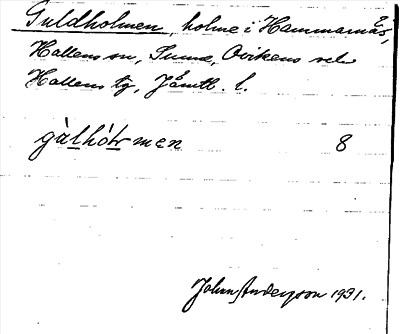 Guldholmen, holme i Hammarnäs,
Hallens sn, Sunne, Ovikens och
Hallens tg, Jämtl. l.
gàlhólmen 8
Johan Anderson 1931.